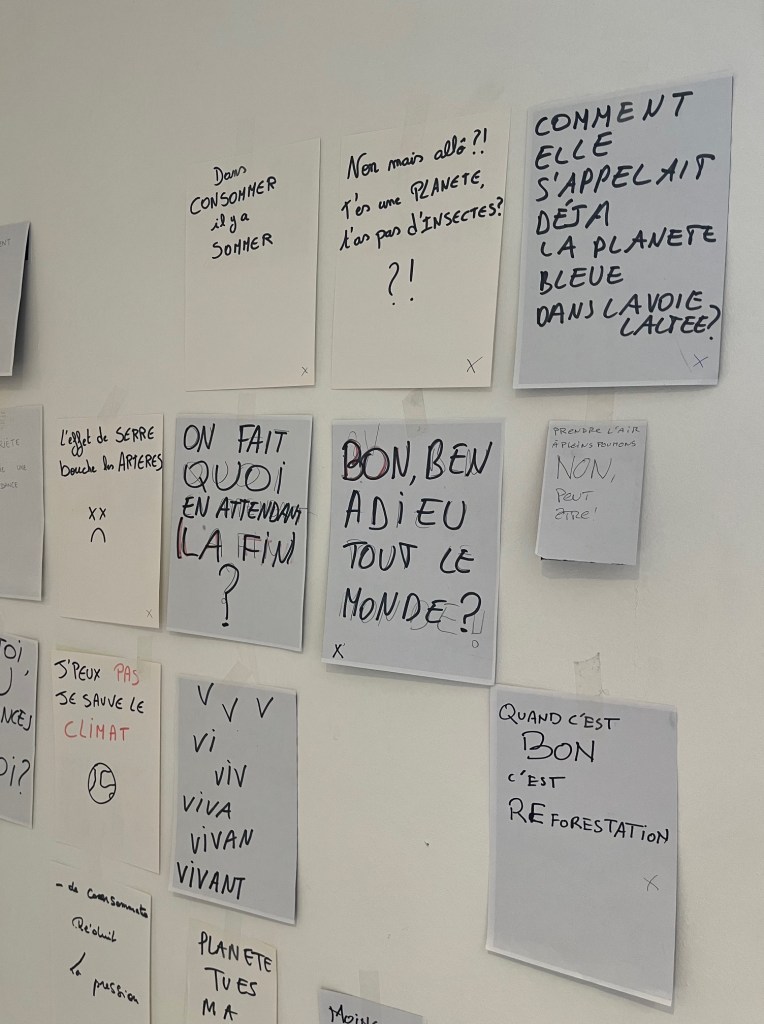 Dans
CONSOMMER
il y a
SOMMER
x
Non mais allô ?!
T'es une PLANÈTE,
t'as pas d'INSECTES?
?!
X
COMMENT
ELLE
S'APPELAIT
DÉJA
LA PLANETE
BLEUE
DANS LA VOIE
LACTEE?
X
L'effet de SERRE
bouche les ARTERES
xx
x
ON FAIT
QUOI
EN ATTENDANT
(LA FIN)
?
BON, BEN
ADIEU
TOUT LE
MONDE?
X
PRENDRE L'AIR
À PLEINS POUMONS
NON,
PEUT
ÊTRE!
TOI,
NCES
OI?
J'PEUX PAS
JE SAUVE LE
CLIMAT
V V V
Vi
ViV
ViVA
ViVAN
ViVANT
QUAND C'EST
BON
C'EST
REFORESTATION
X
Réduit
la pression
PLANETE
TU ES
MA
MOINS